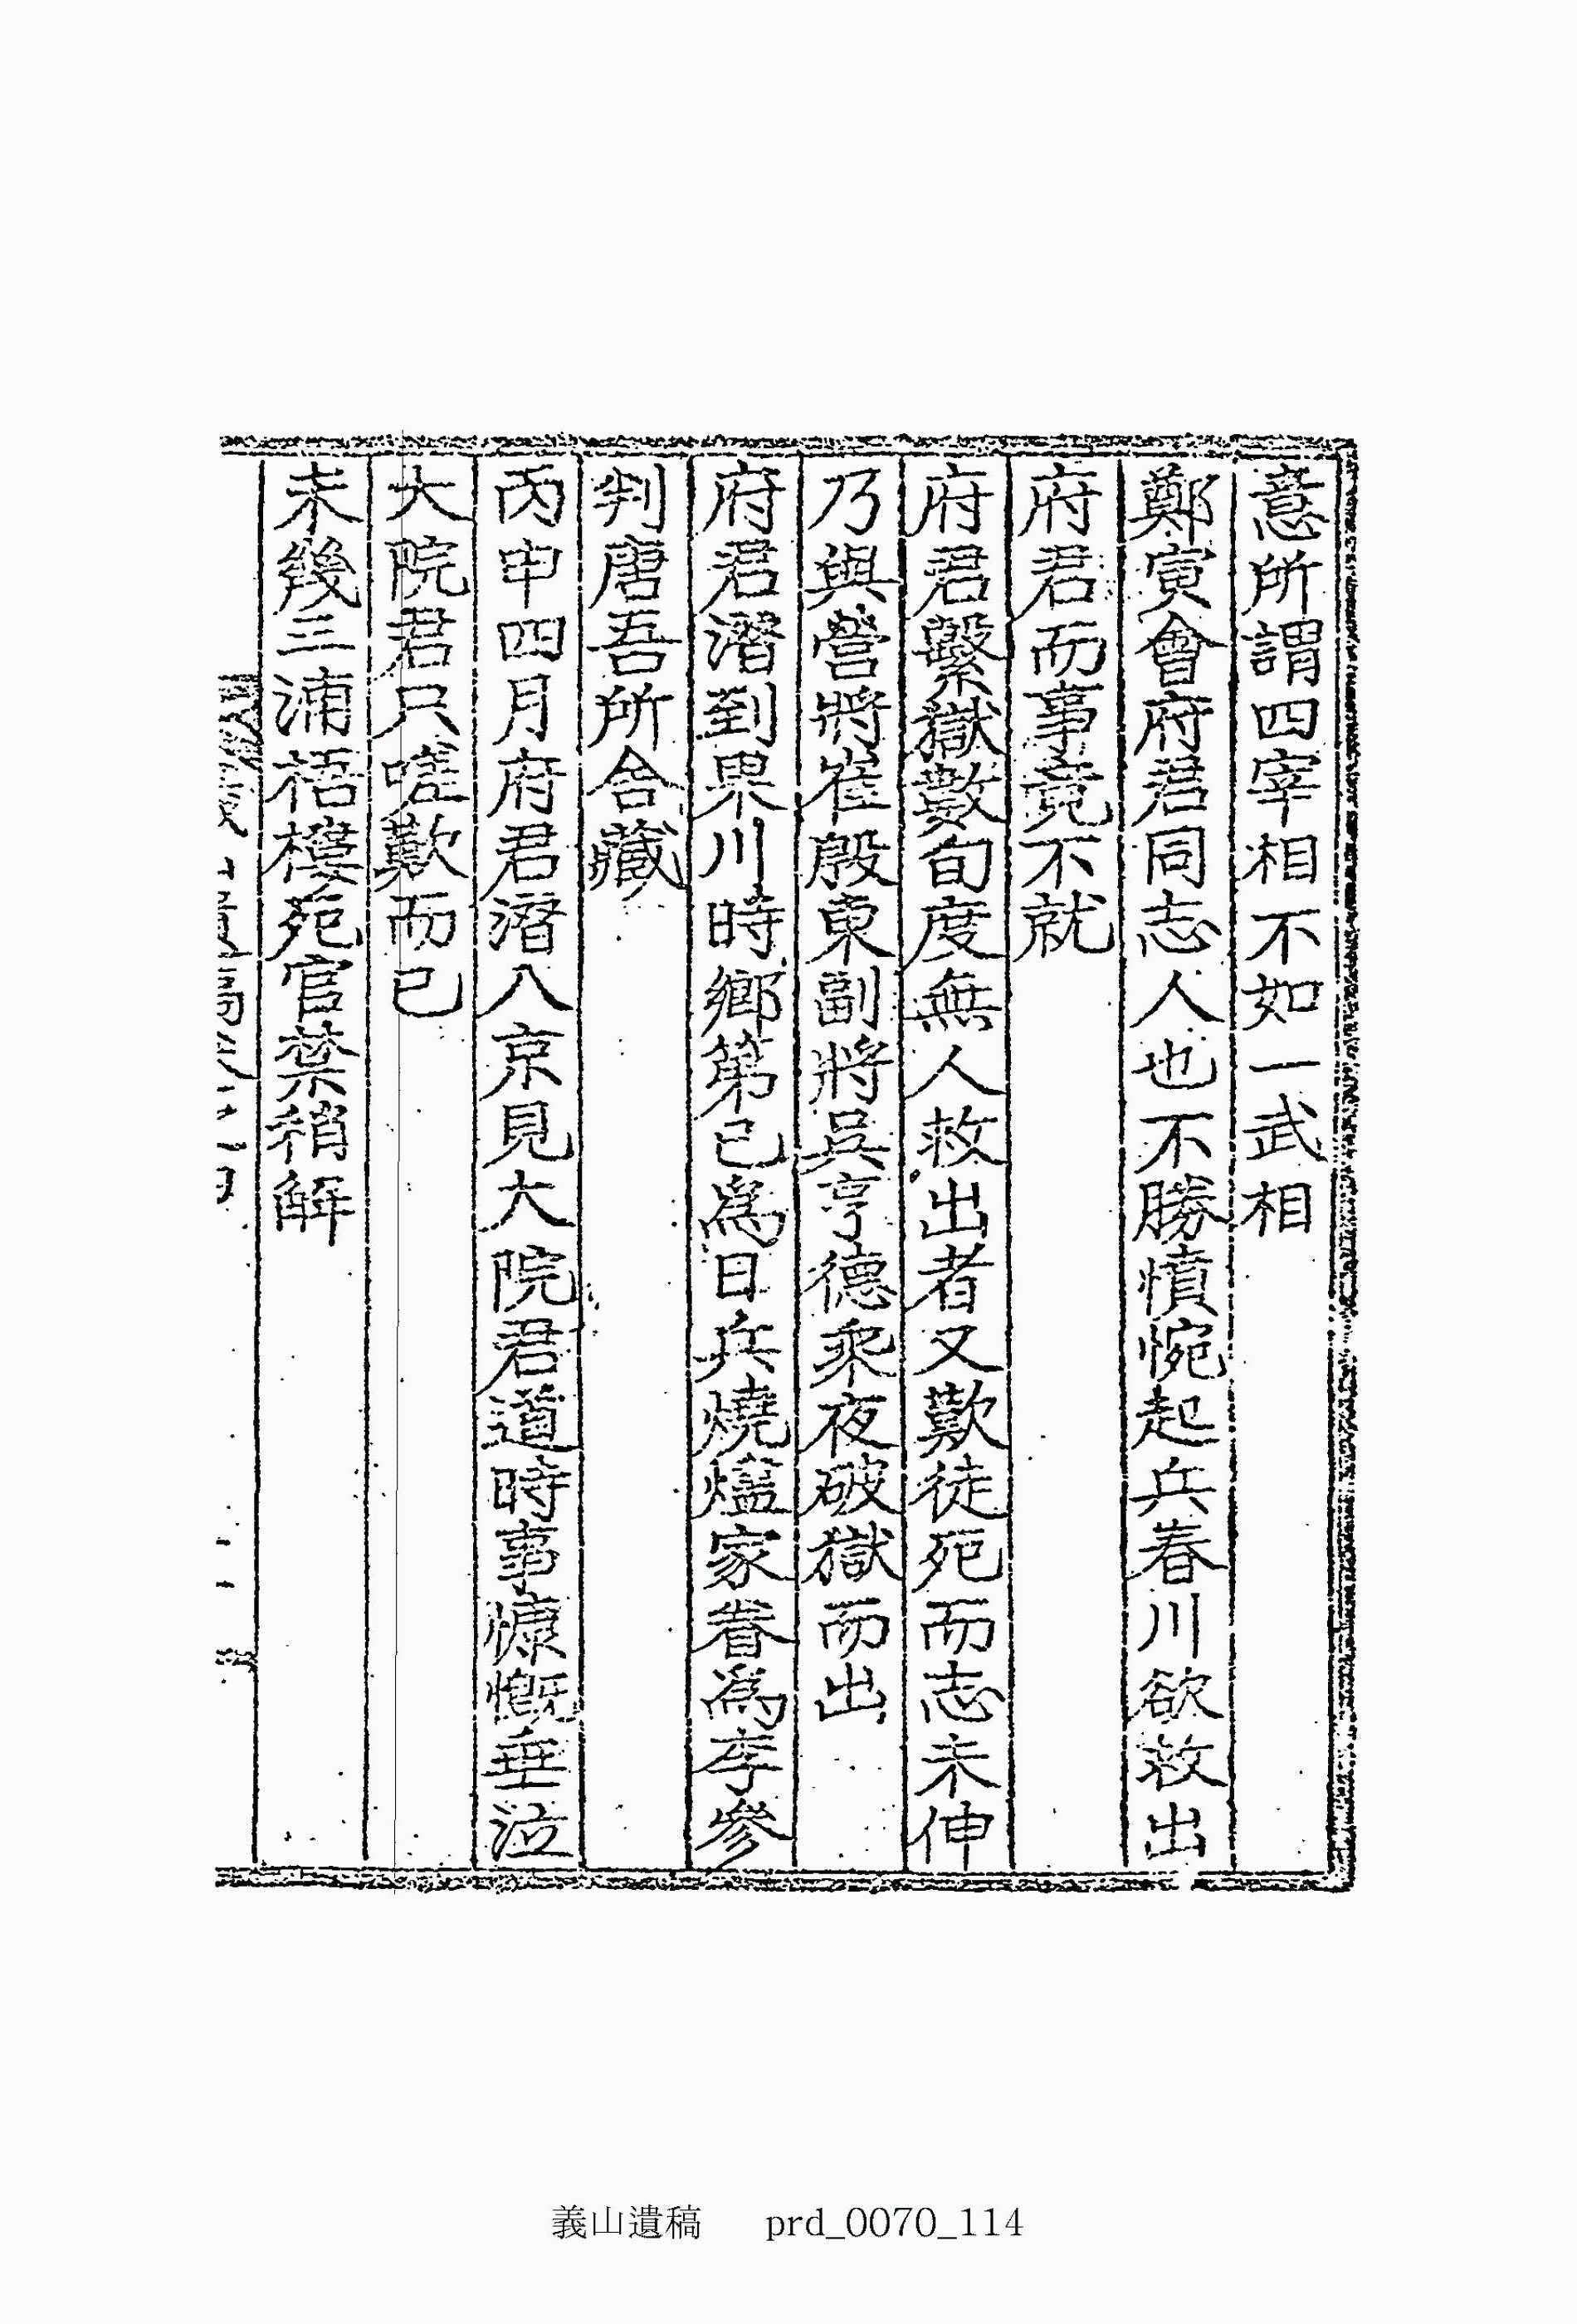 意所謂四宰相不如一武相
鄭寅會府君同志人也不勝憤惋起兵春川欲救出
府君而事竟不就
府君繫獄數旬度無人救出者又歎徒死而志未伸
乃與營將崔殷東副將吳亨德乘夜破獄而出
府君潛到果川時鄉第已爲日兵燒燼家眷爲李參
判唐吾所舍藏
丙申四月府君潛入京見大院君道時事慷慨垂泣
大院君只嗟歎而已
未幾三浦梧樓死官禁稍解
義山遺稿 prd_0070_114